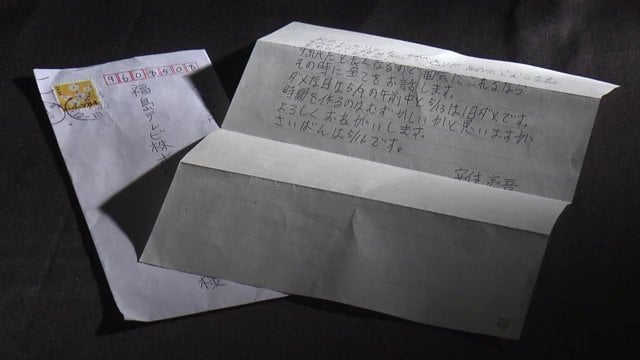 9608508
福島テレビ株
様
だと長くなるので面会にこれるなら
その時に全てをお話します。
ダメな日は5/9の午前中と5/13は1日ダメです。
時間を作るのはむずかしいかと思いますが
よろしくおねがいします。
さいばんは5/16です。